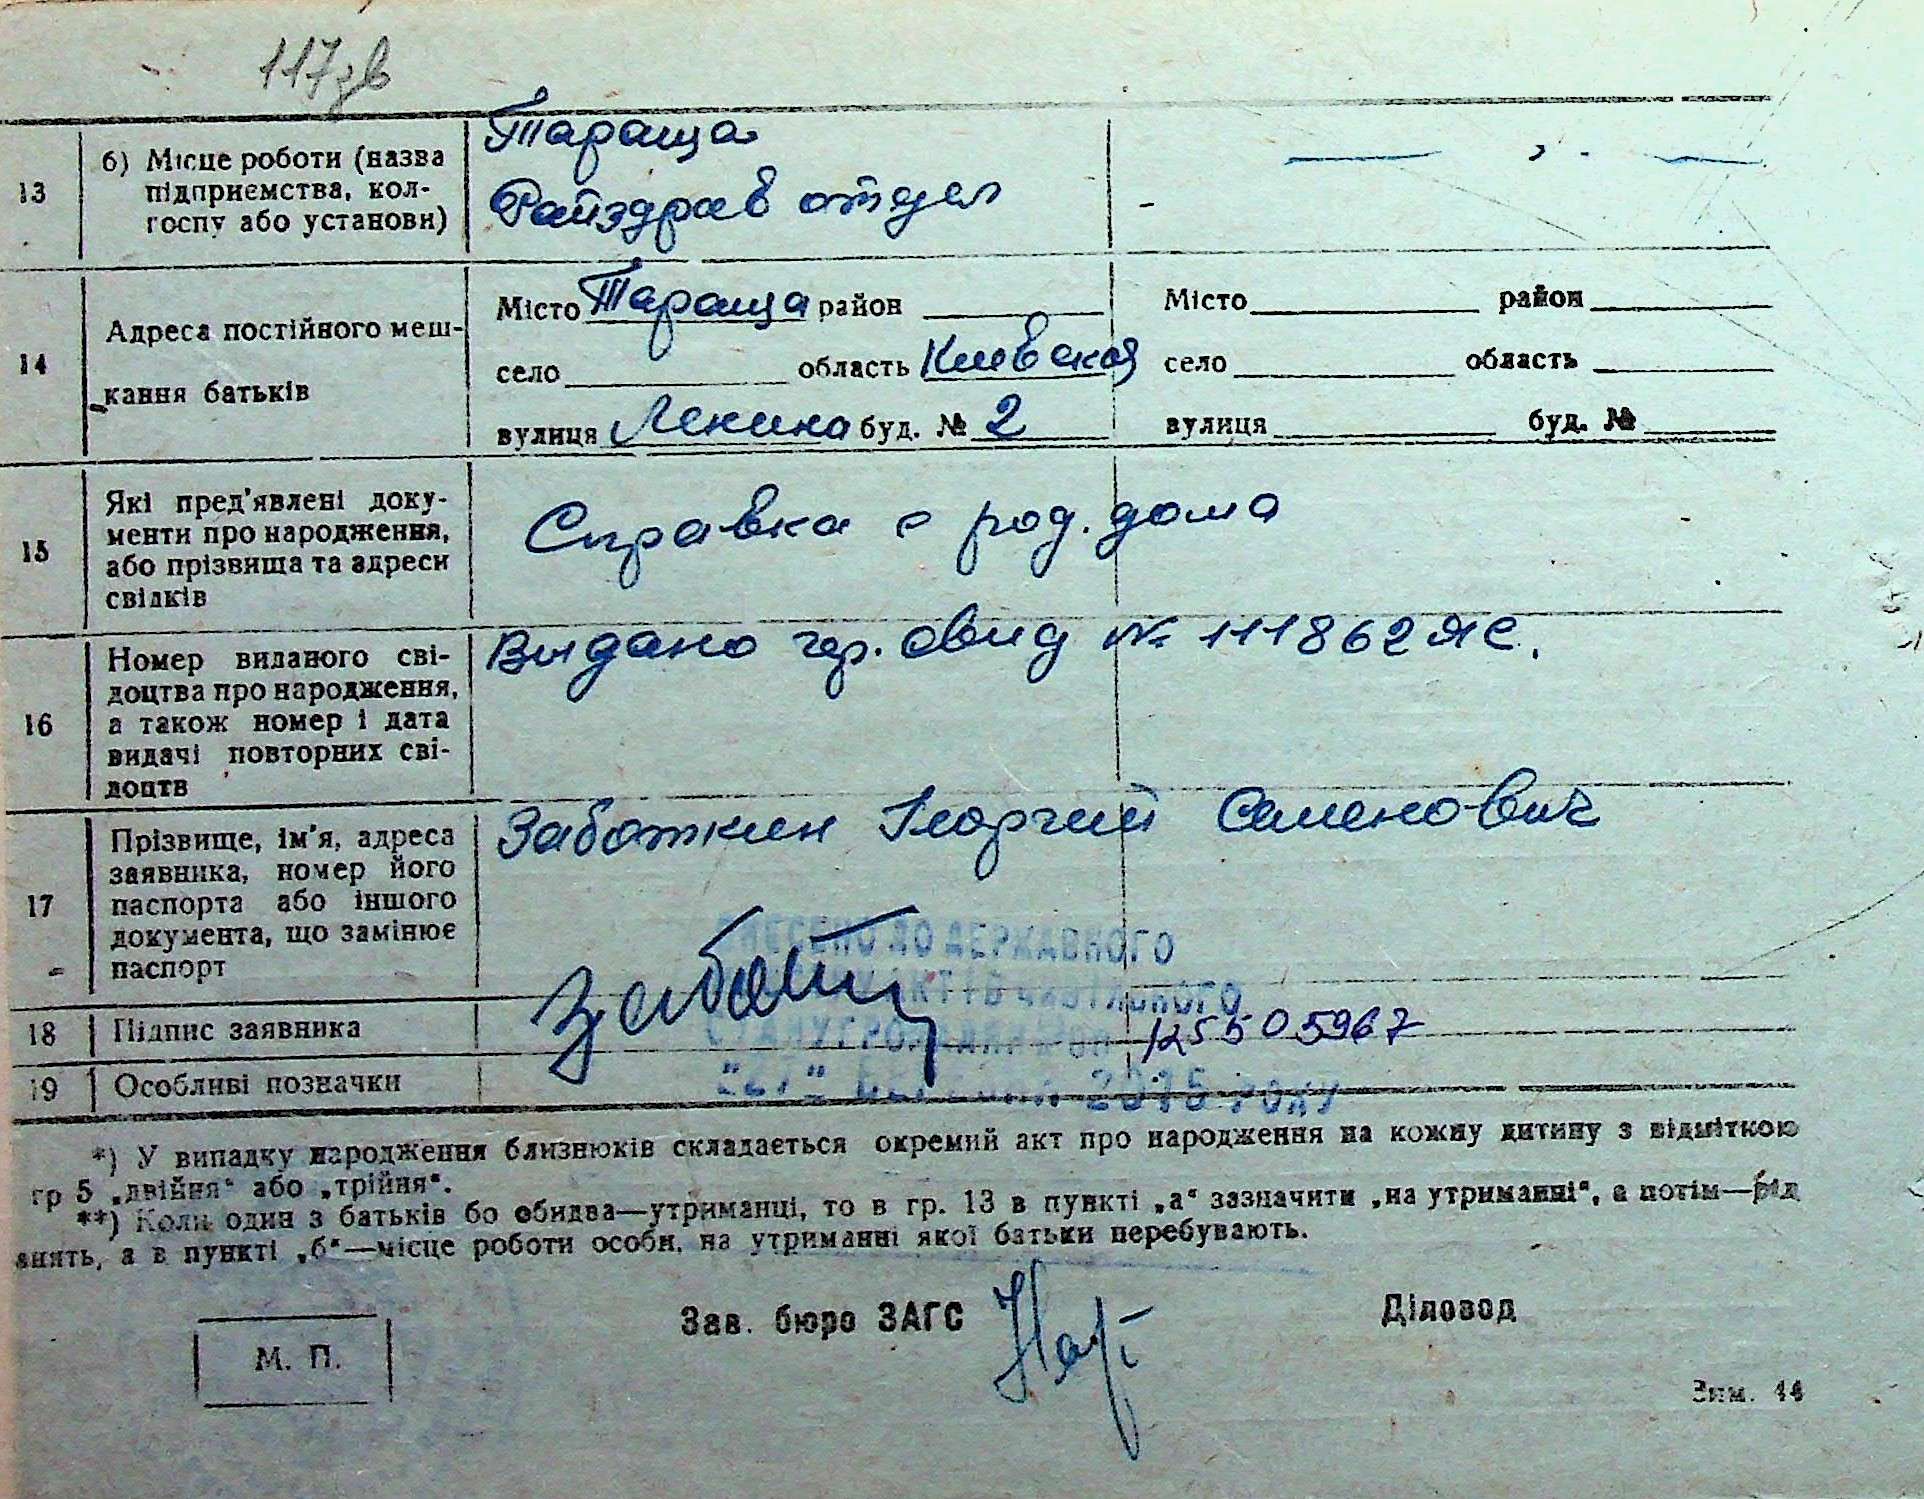 117зв
13
б) Місце роботи (назва
підприємства, кол-
госпу або установи)
Тараща
Райздрав отдел
14
Адреса постійного меш-
кання батьків
Місто Тараща район
село область Киевская
вулиця Ленина буд. № 2
Місто район
село область
вулиця буд. №
15
Які пред'явлені доку-
менти про народження,
або прізвища та адреси
свідків
Справка с род. дома
16
Номер виданого сві-
доцтва про народження,
а також номер і дата
видачі повторних сві-
доцтв
Видано гер. свид № 111862 ЯС.
17
Прізвище, ім'я, адреса
заявника, номер його
паспорта або іншого
документа, що замінює
паспорт
Заботкин Георгий Семенович
ВНЕСЕНО ДО ДЕРЖАВНОГО
АКТІВ ЦИВІЛЬНОГО
СТАНУ ГРОМАДЯН
2015 РОКУ
18
Підпис заявника
12550 5967
19
Особливі позначки
*) У випадку народження близнюків складається окремий акт про народження на кожну дитину з відміткою
гр 5 „двійня“ або „трійня“.
**) Коли один з батьків бо обидва—утриманці, то в гр. 13 в пункті „а“ зазначити „на утриманні“, а потім—рід
анять, а в пункті „б“—місце роботи особи, на утриманні якої батьки перебувають.
Зав. бюро ЗАГС
Діловод
М. П.
Зим. 44